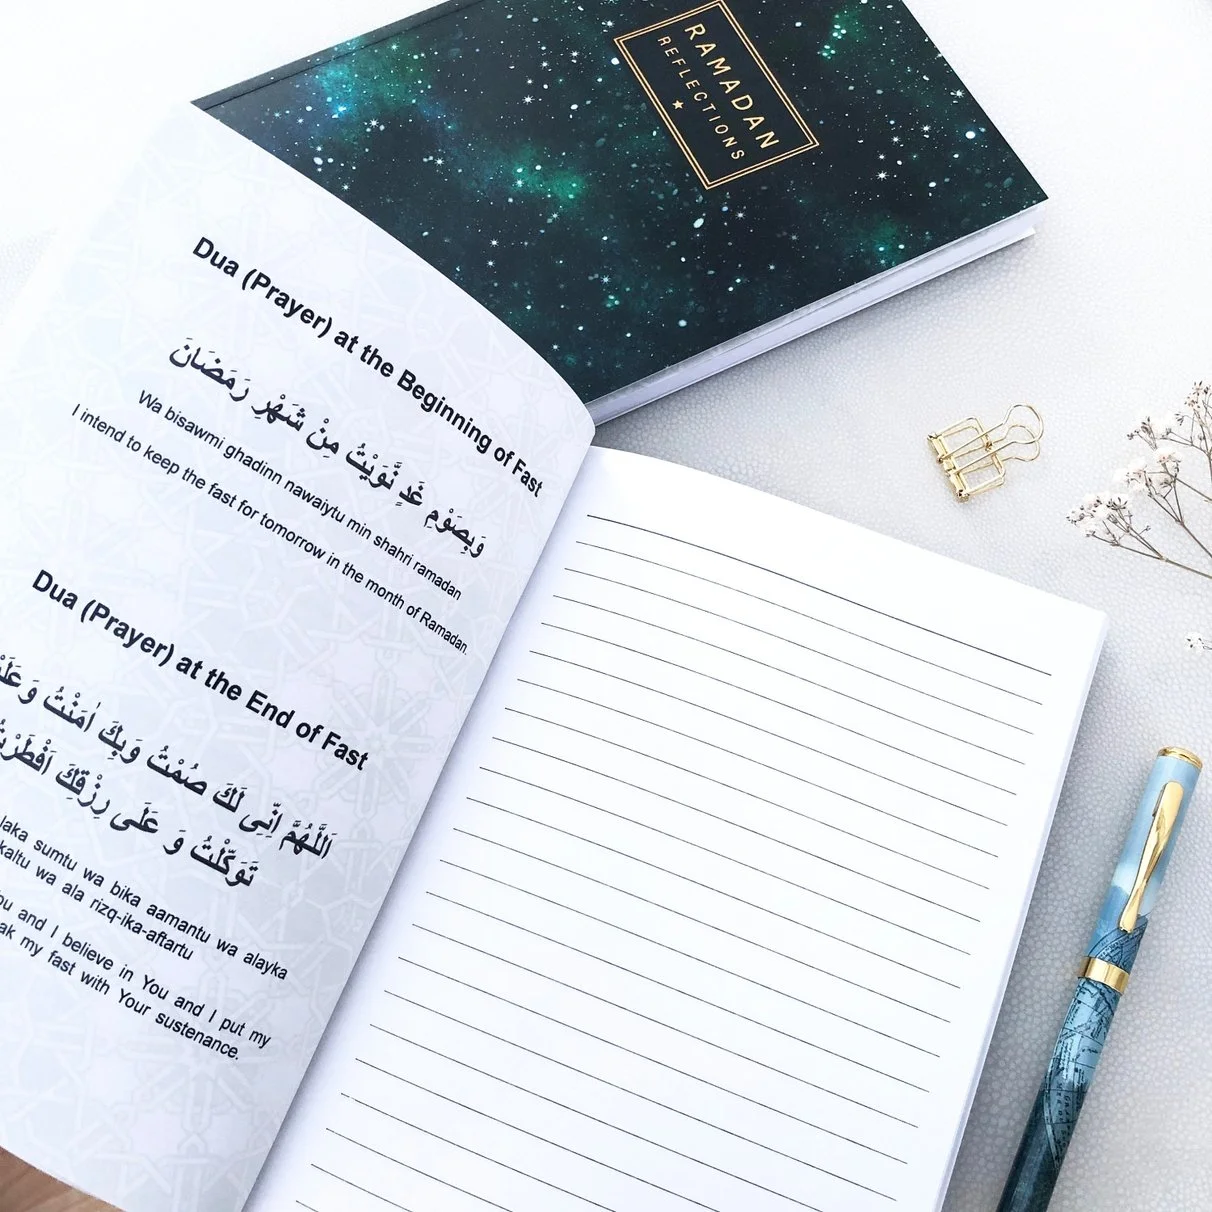 RAMADAN
REFLECTIONS
Dua (Prayer) at the Beginning of Fast
وَبِصَوْمِ غَدٍ نَّوَيْتُ مِنْ شَهْرِ رَمَضَانَ
Wa bisawmi ghadinn nawaiytu min shahri ramadan
I intend to keep the fast for tomorrow in the month of Ramadan.
Dua (Prayer) at the End of Fast
اَللَّهُمَّ اِنِّى لَكَ صُمْتُ وَبِكَ اٰمَنْتُ
تَوَكَّلْتُ وَ عَلَى رِزْقِكَ
sumtu wa bika aamantu wa alayka
wa ala rizq-ika-aftartu
and I believe in You and I put my
my fast with Your sustenance.